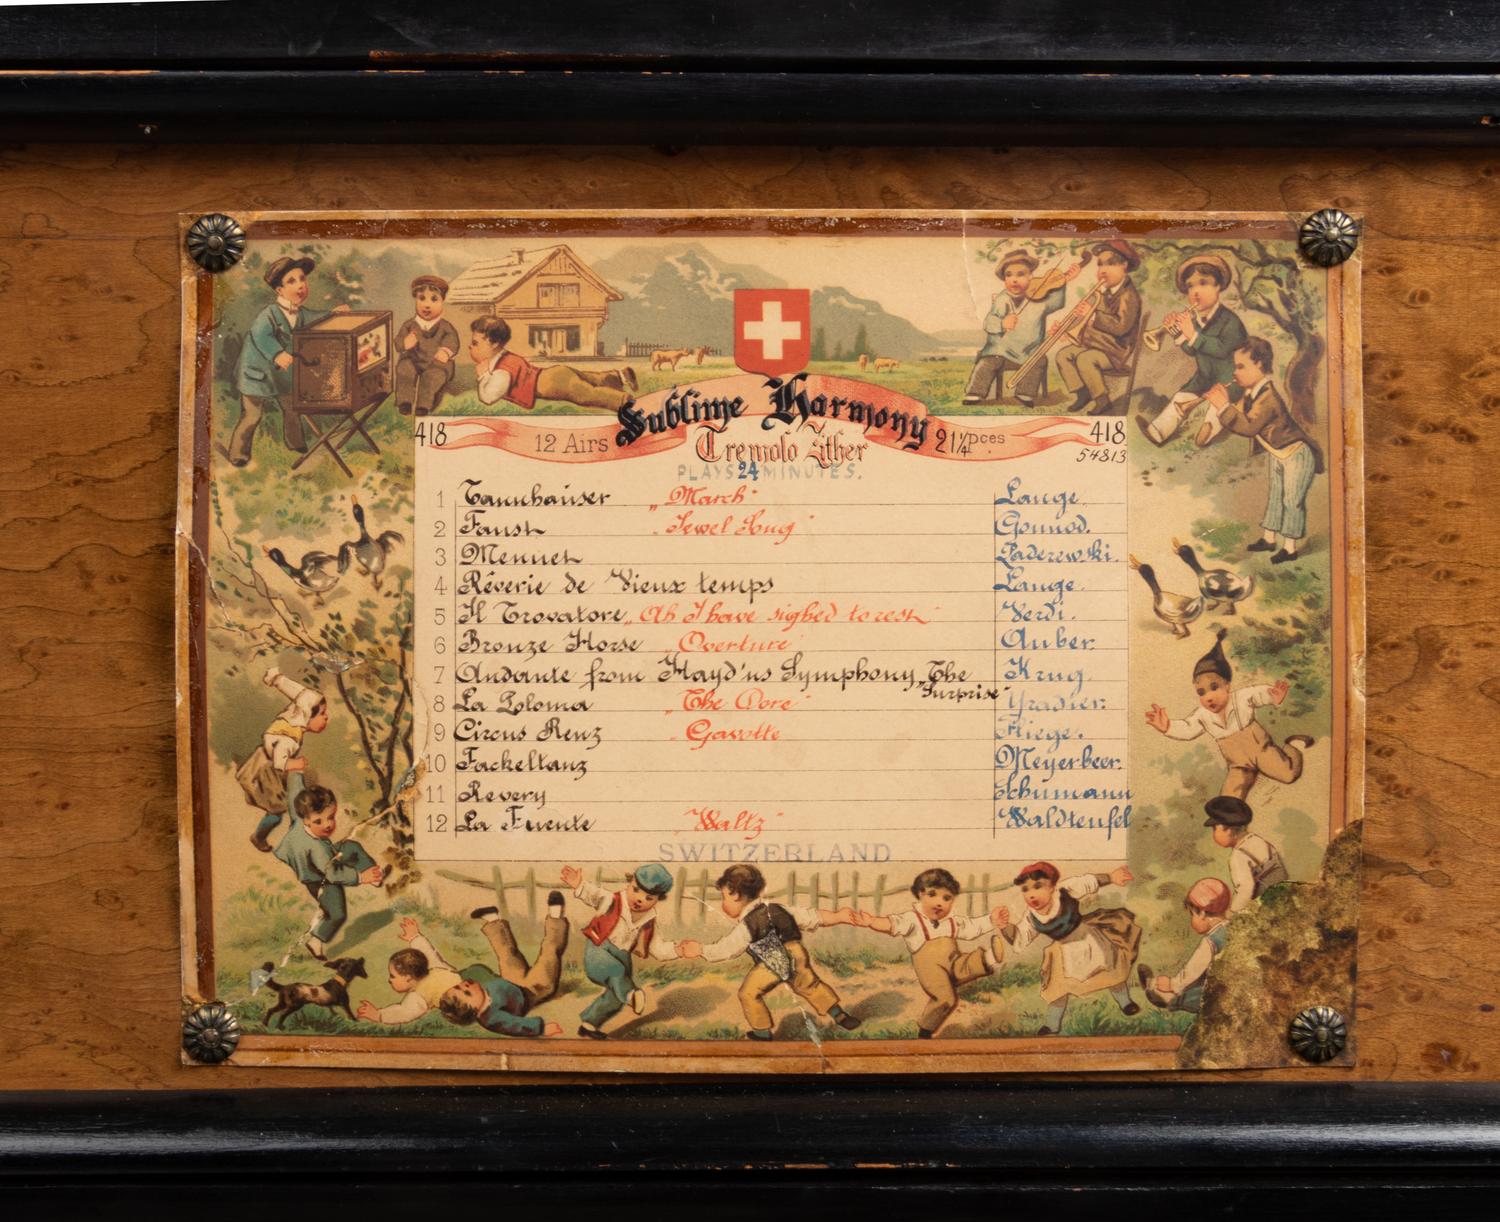 Sublime Harmony
418 12 Airs Tremolo Zither 2 1/4 Pces 418
PLAYS 24 MINUTES. 54813
1 Tannhaüser „March" Lange.
2 Faust „Jewel Song" Gounod.
3 Menuet Paderewski.
4 Rêverie de Vieux temps Lange.
5 Il Trovatore „Ah I have sighed to rest" Verdi.
6 Bronze Horse „Overture" Auber.
7 Andante from Hayd'ns Symphony „The Surprise" Krug.
8 La Poloma „The Dove" Yradier.
9 Circus Renz „Gavotte" Fliege.
10 Fackeltanz Meyerbeer.
11 Revery Schumann
12 La Fuente „Waltz" Waldteufel
SWITZERLAND